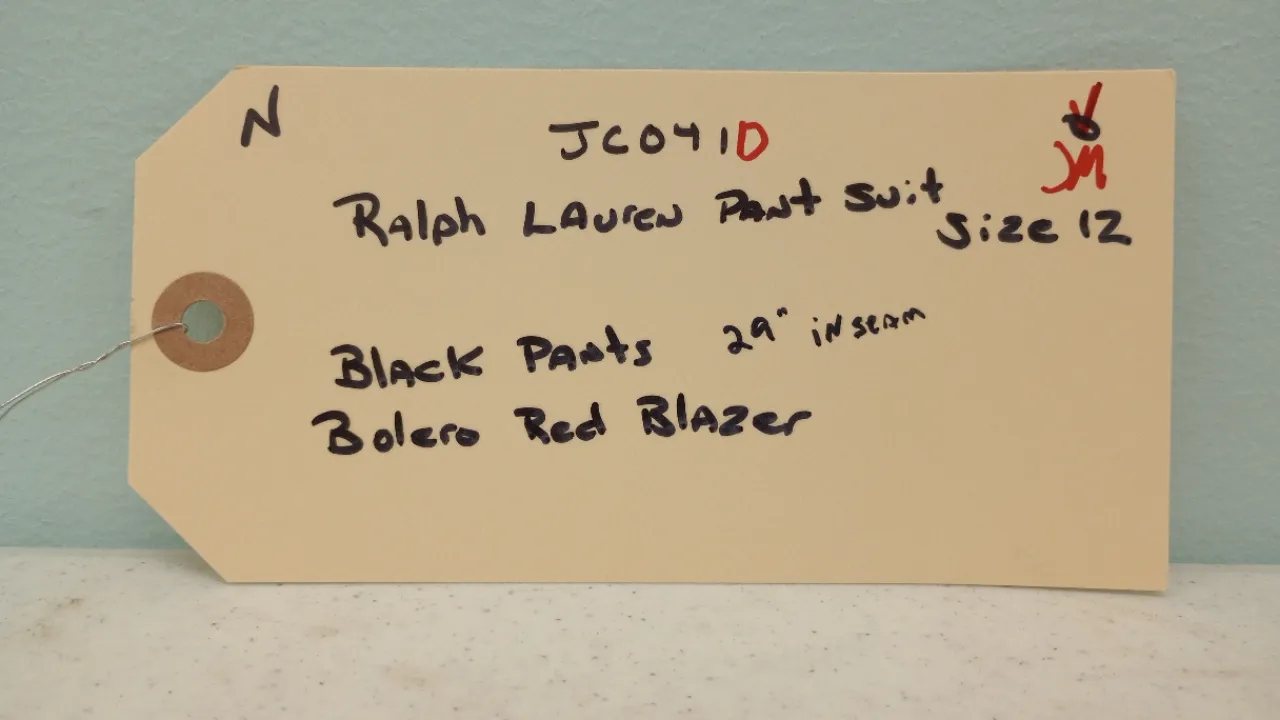 N
JC041D
JM
Ralph Lauren Pant Suit
Size 12
Black Pants 29" inseam
Bolero Red Blazer